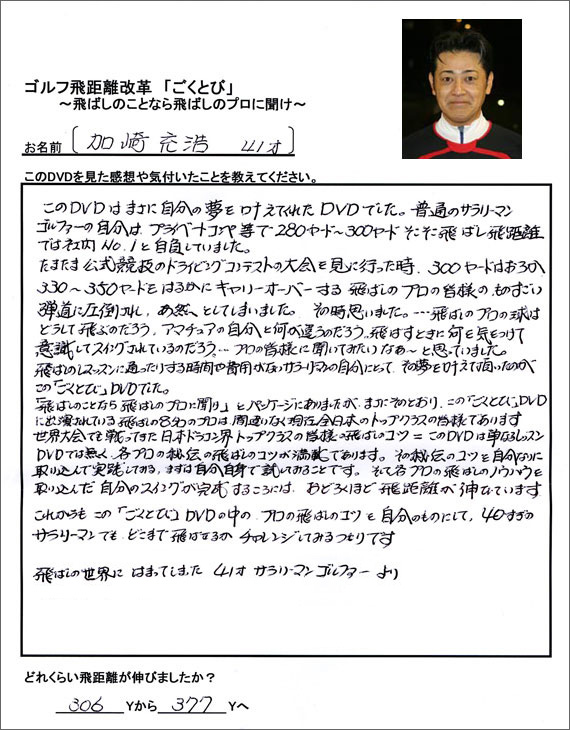 ゴルフ飛距離改革 「ごくとび」
～飛ばしのことなら飛ばしのプロに聞け～
お名前 〔加崎 充浩 41才〕
このDVDを見た感想や気付いたことを教えてください。
このDVDはまさに自分の夢を叶えてくれたDVDでした。普通のサラリーマン
ゴルファーの自分は、プライベートコンペ等で280ヤード～300ヤードそこそこ飛ばし飛距離
では社内No.1と自負していました。
たまたま公式競技のドライビングコンテストの大会を見に行った時、300ヤードはおろか
330～350ヤードをはるかにキャリーオーバーする飛ばしのプロの皆様のものすごい
弾道に圧倒され、あ然としてしまいました。その時思いました。…飛ばしのプロの球は
どうして飛ぶのだろう、アマチュアの自分と何が違うのだろう、飛ばすときに何を気をつけて
意識してスイングされているのだろう…プロの皆様に聞いてみたいなあ～と思っていました。
飛ばしのレッスンに通ったりする時間や費用がないサラリーマンの自分にとって、その夢を叶えて頂いたのが
この「ごくとび」DVDでした。
「飛ばしのことなら飛ばしのプロに聞け」とパッケージにありましたが、まさにそのとおり、この「ごくとび」DVD
に出演されている飛ばしの8名のプロは、間違いなく現在全日本のトップクラスの皆様であります
世界大会でも戦ってきた日本ドラコン界トップクラスの皆様の飛ばしのコツ=このDVDは単なるレッスン
DVDでは無く、各プロの秘伝の飛ばしのコツが満載であります。その秘伝のコツを自分なりに
取り込んで実践してみる、まずは自分自身で試してみることです。そして各プロの飛ばしのノウハウを
取り込んだ自分のスイングが完成するころには、おどろくほど飛距離が伸びています
これからもこの「ごくとび」DVDの中の、プロの飛ばしのコツを自分のものにして、40すぎの
サラリーマンでも、どこまで飛ばせるかチャレンジしてみるつもりです
飛ばしの世界にはまってしまった 41才 サラリーマンゴルファーより
どれくらい飛距離が伸びましたか？
306 Yから 377 Yへ